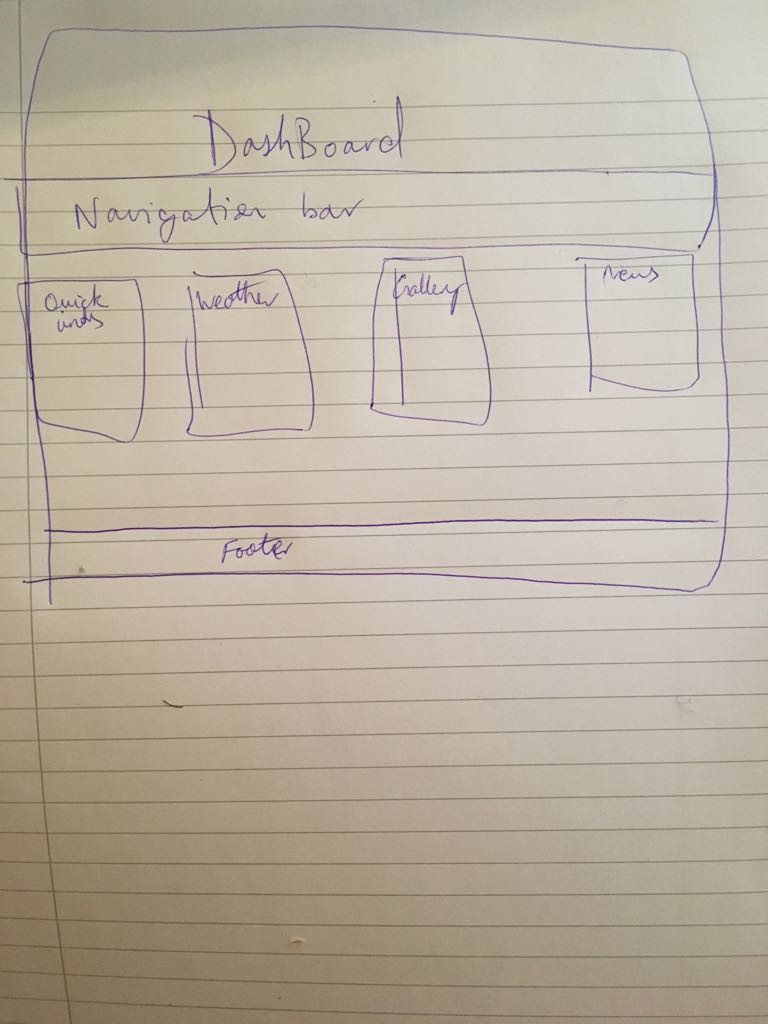 DashBoard
Navigation bar
Quick
Weather
Gallery
News
Footer